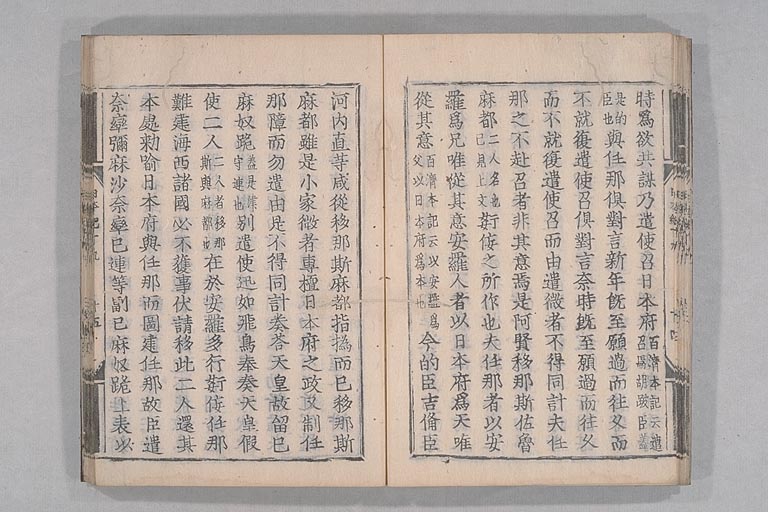 時爲欲共謀乃遣使召日本府百濟本記云遣召烏胡跛臣蓋
是的臣也與任那俱對言新年既至願過而往久而
不就復遣使召俱對言祭時既至願過而往久
而不就復遣使召而由遣微者不得同計夫任
那之不赴召者非其意焉是阿賢移那斯佐魯
麻都二人名也已見上文姧佞之所作也夫任那者以安
羅爲兄唯從其意安羅人者以日本府爲天唯
從其意百濟本記云以安羅爲父以日本府爲本也今的臣吉備臣
河内直等咸從移那斯麻都指撝而已移那斯
麻都雖是小家微者專擅日本府之政又制任
那障而勿遣由是不得同計奏荅天皇故留已
麻奴跪蓋是津守連也別遣使迅如飛鳥奉奏天皇假
使二人二人者移那斯與麻都也在於安羅多行姧佞任那
難建海西諸國必不獲事伏請移此二人還其
本處勑喻日本府與任那而圖建任那故臣遣
奈率彌麻沙奈率已連等副已麻奴跪上表以